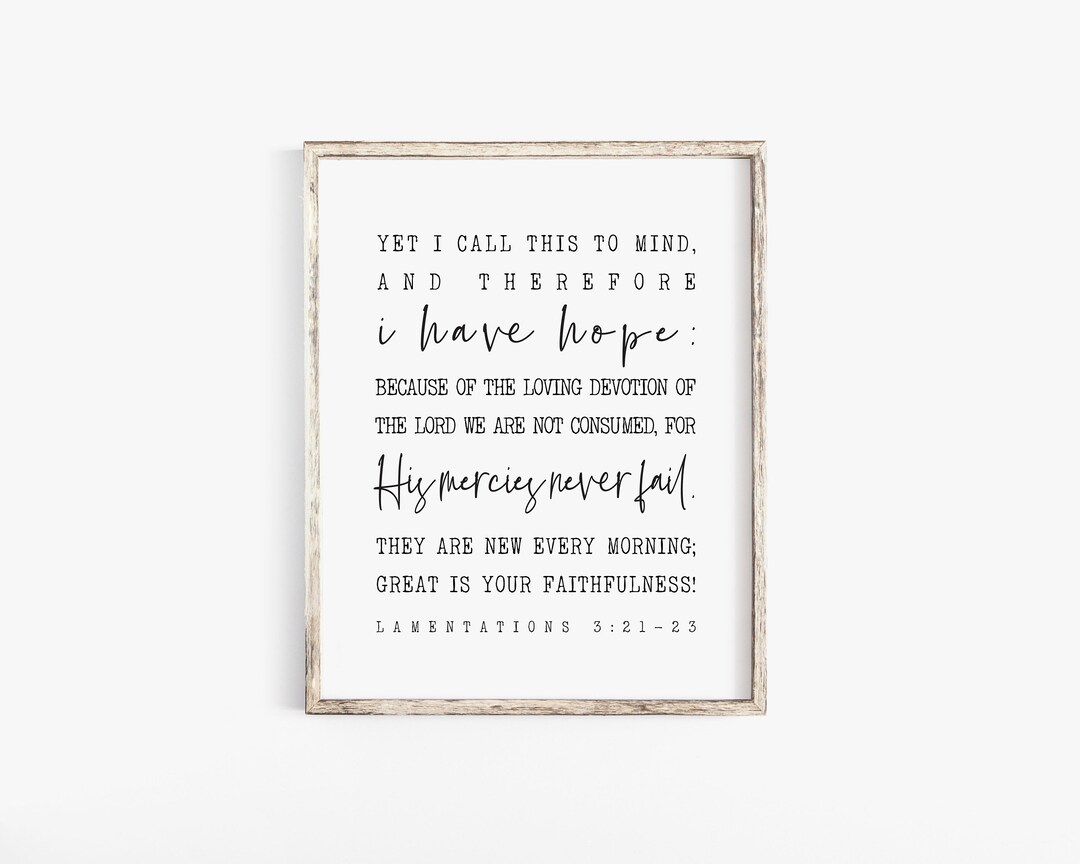 YET I CALL THIS TO MIND,
AND THEREFORE
i have hope:
BECAUSE OF THE LOVING DEVOTION OF
THE LORD WE ARE NOT CONSUMED, FOR
His mercies never fail.
THEY ARE NEW EVERY MORNING;
GREAT IS YOUR FAITHFULNESS!
LAMENTATIONS 3:21-23